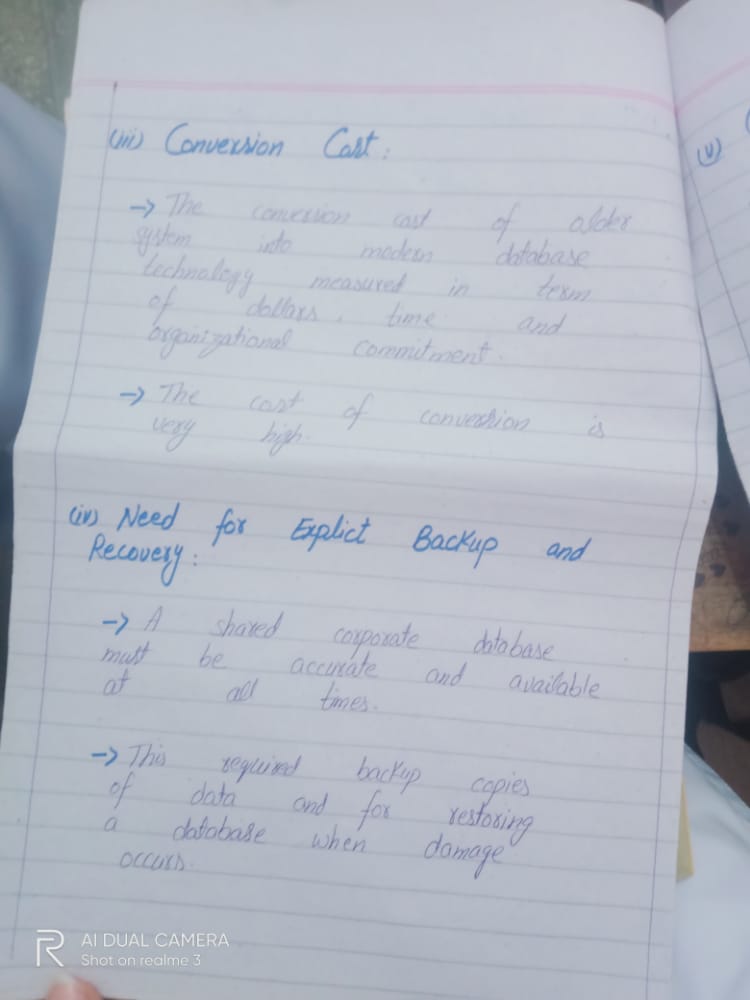 (iii) Conversion Cost :
→ The conversion cost of older
system into modern database
technology measured in term
of dollars, time and
organizational commitment.
→ The cost of conversion is
very high.
(iv) Need for Explict Backup and
Recovery :
→ A shared corporate database
must be accurate and available
at all times.
→ This required backup copies
of data and for restoring
a database when damage
occurs.
(v)
R
AI DUAL CAMERA
Shot on realme 3